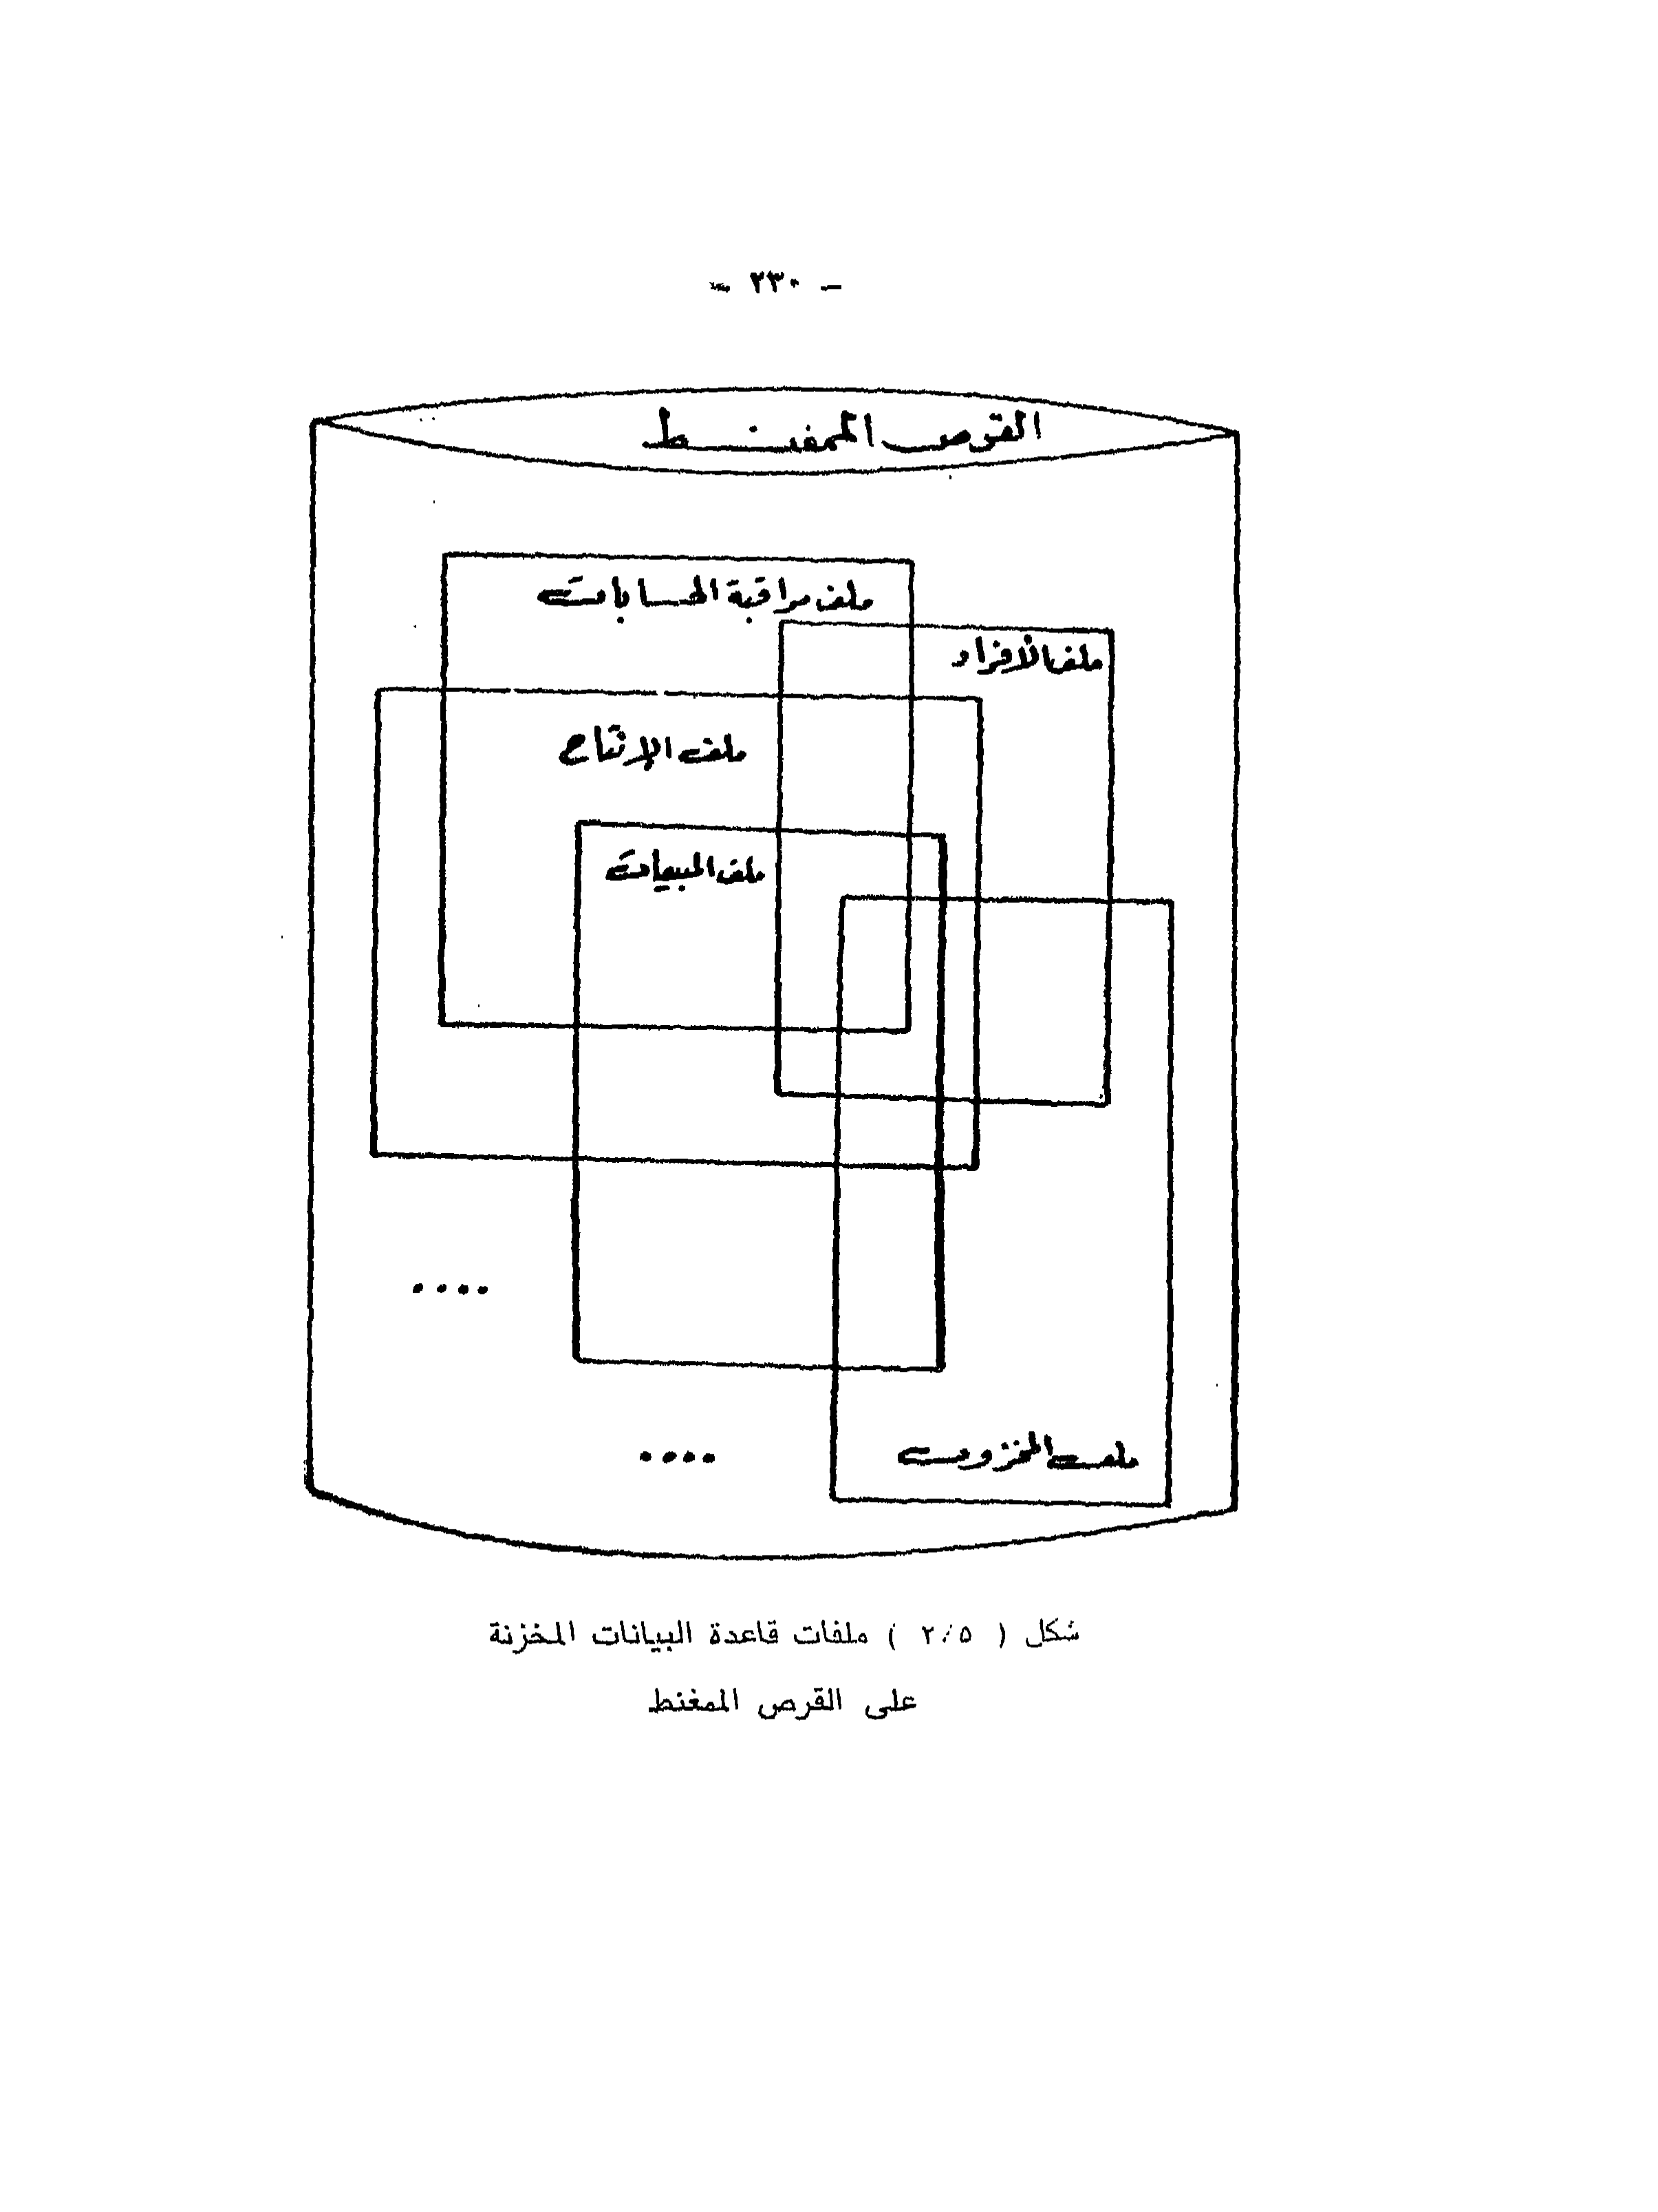 - ٢٣٠ -
القرص الممغنط
ملف مراقبة الحسابات
ملف الأفراد
ملف الإنتاج
ملف المبيعات
....
....
ملف المخزون
شكل ( ٢/٥ ) ملفات قاعدة البيانات المخزنة
على القرص الممغنط